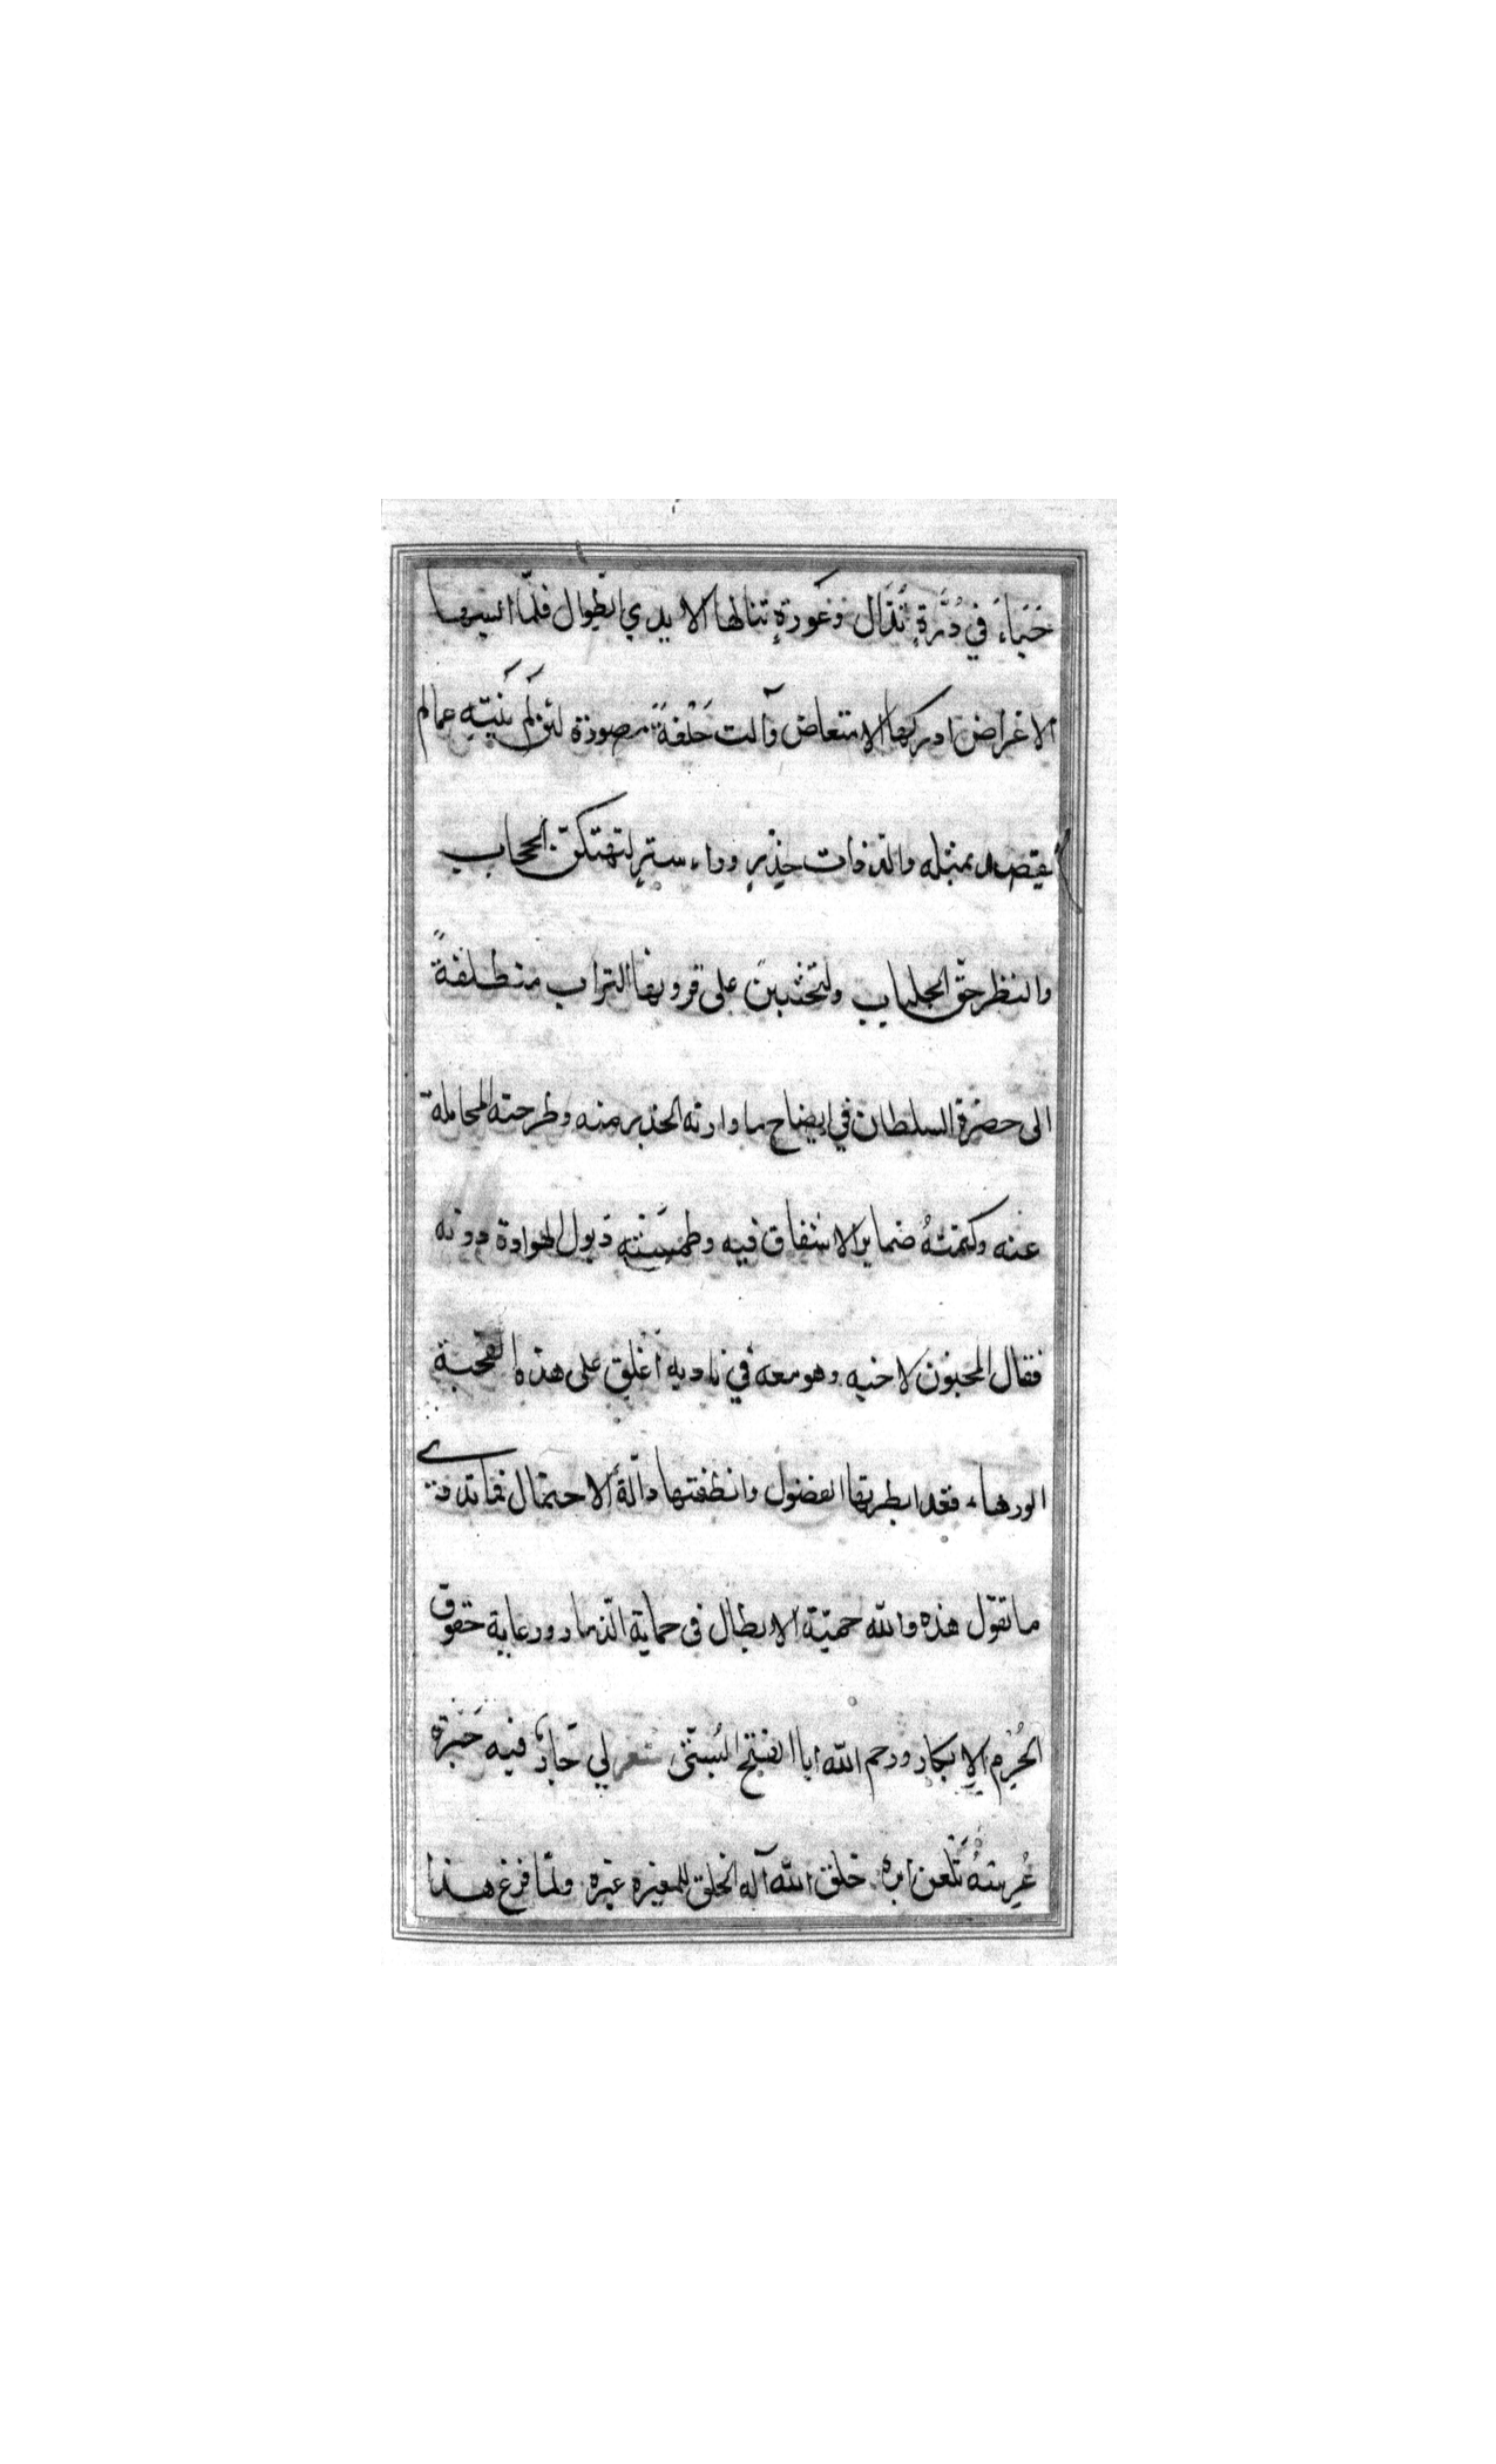 حَيَاءً في دُرَّةٍ تُذَال وعَورَةٍ تنالها الايدي الطّوال فلمّا
الاغراض ادركها الامتعاض وآلت حَلْفةً لئن لم عمالم
بمثله والله ذات حِذرٍ ستر لتهتكنّ الحجاب
والنظر حقّ الجلباب ولتحثينّ على قرونها التراب متطلفةً
الى حضرة السلطان في ايضاح ما وارته الحذر منه وطرحته المجاملة
عنه وكتمتهُ ضماير الاشفاق فيه وطمسَته ذيول الهوادة دونه
فقال المجنون لاخيه وهو معه في ناديه اغلق على هذه القحبة
الورهاء فقد ابطرتها الفضول وانطقتها دالّة الاحتمال فما تدرى
ما تقول هذه والله حميّة الابطال في حماية الذّمار ورعاية حقوق
الحُرم الابكار ورحم الله ابا الفتح البُستيّ شعر لي جارٌ فيه حَيْرَه
عُرسُهُ تَلعن ايره خلق الله آلة الخلق للغيره غيره ولمّا فرغ هذا